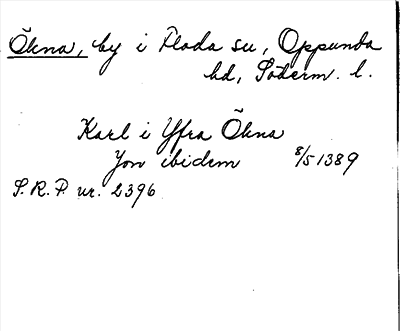 Ökna, by i Floda su, Oppunda
hd, Söderm. l.
Karl i Yfra Ökna
Jon ibidem 8/5 1389
S.R.P. nr. 2396